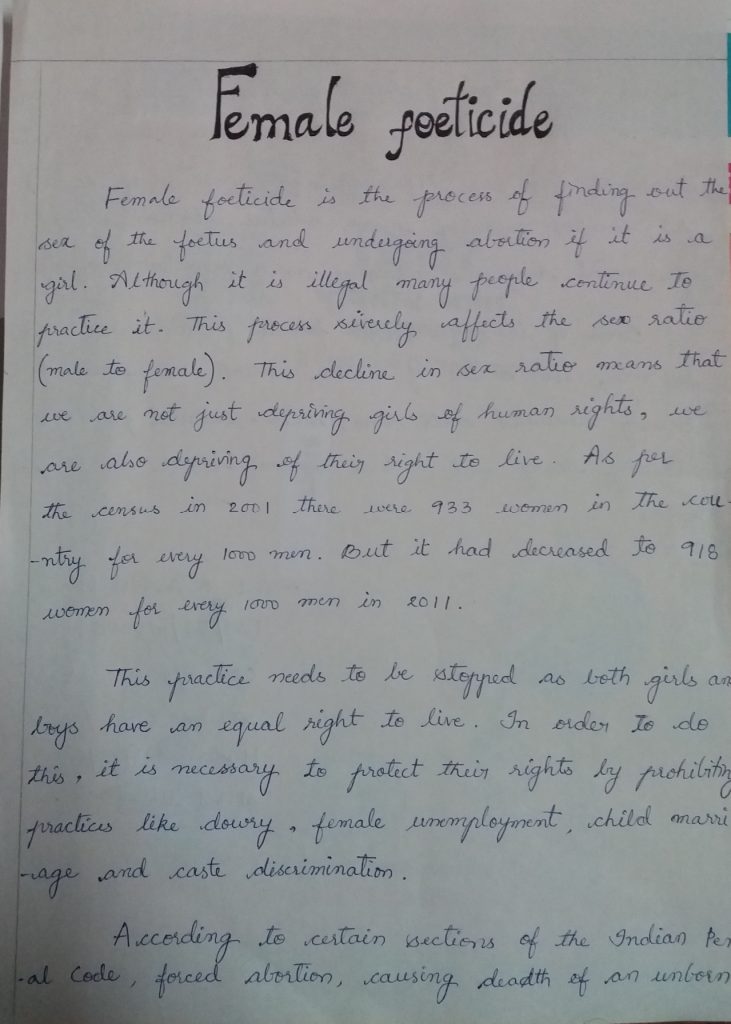 Female foeticide
Female foeticide is the process of finding out the
sex of the foetus and undergoing abortion if it is a
girl. Although it is illegal many people continue to
practice it. This process siverely affects the sex ratio
(male to female). This decline in sex ratio means that
we are not just depriving girls of human rights, we
are also depriving of their right to live. As per
the census in 2001 there were 933 women in the cou-
-ntry for every 1000 men. But it had decreased to 918
women for every 1000 men in 2011.
This practice needs to be stopped as both girls an
boys have an equal right to live. In order to do
this, it is necessary to protect their rights by prohibiting
practices like dowry, female unemployment, child marri
-age and caste discrimination.
According to certain sections of the Indian Pen
-al Code, forced abortion, causing deadth of an unborn